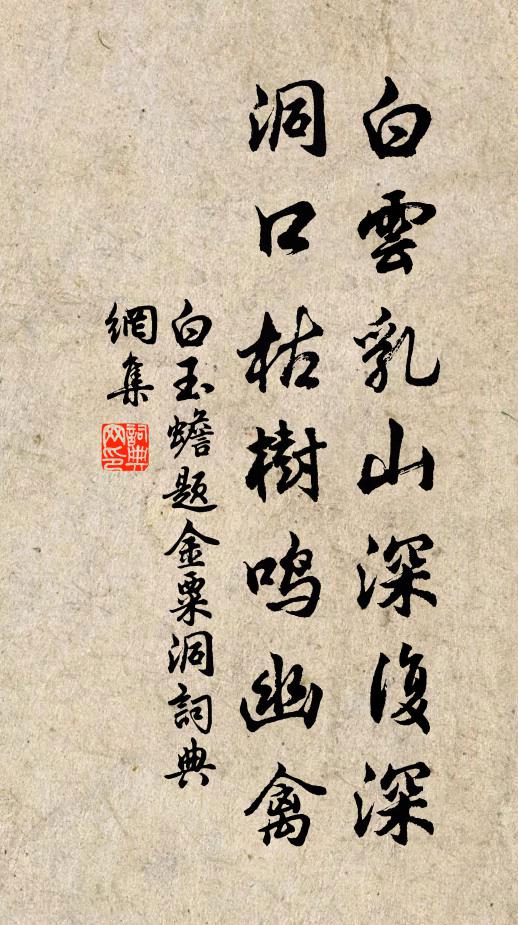 白雲乳山深復深
洞口枯樹鸣幽禽
白玉蟾题金粟洞詞典
網集
詞典
网印